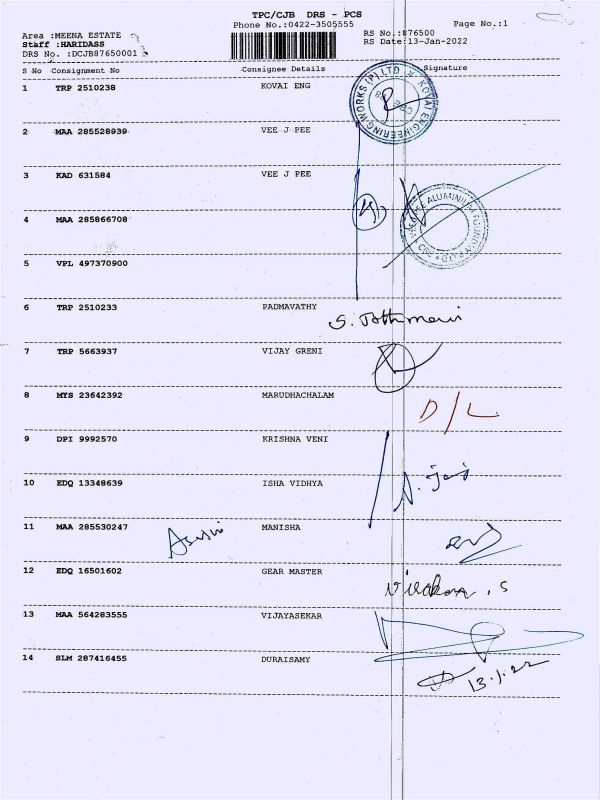 TPC/CJB DRS - PCS
Phone No.:0422-3505555 Page No.:1
Area :MEENA ESTATE RS No.:876500
Staff :HARIDASS RS Date:13-Jan-2022
DRS No. :DCJB87650001
S No Consignment No Consignee Details Signature
1 TRP 2510238 KOVAI ENG
KOVAI ENGINEERING WORKS (P) LTD
2 MAA 285528939 VEE J PEE
3 KAD 631584 VEE J PEE
4 MAA 285866708
ALUMINIUM FOUNDRY
5 VPL 497370900
6 TRP 2510233 PADMAVATHY
7 TRP 5663937 VIJAY GRENI
8 MYS 23642392 MARUDHACHALAM D/L
9 DPI 9992570 KRISHNA VENI
10 EDQ 13348639 ISHA VIDHYA
11 MAA 285530247 MANISHA
12 EDQ 16501602 GEAR MASTER
13 MAA 564283555 VIJAYASEKAR
14 SLM 287416455 DURAISAMY 13.1.22